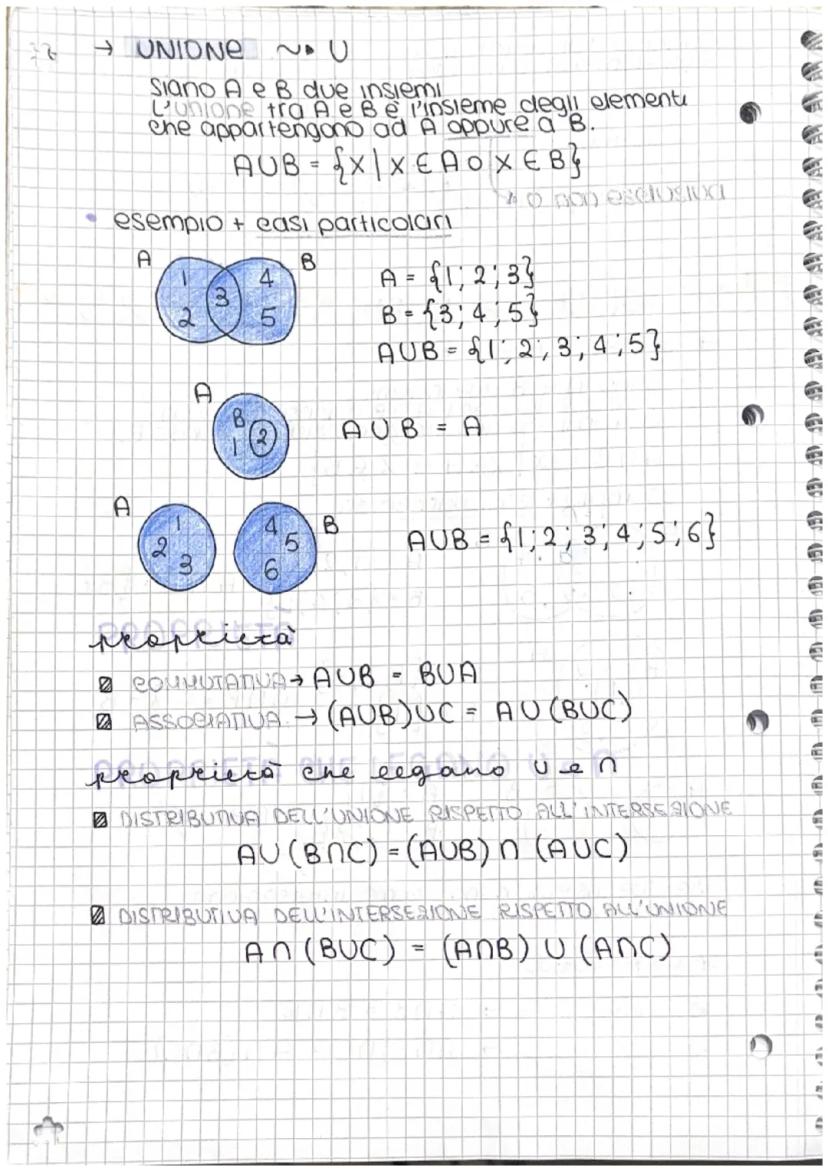 → UNIONE ~• U
Siano A e B due insiemi
L'unione tra A e B è l'insieme degli elementi
che appartengono ad A oppure a B.
A∪B = {x | x ∈ A o x ∈ B}
↳ o non esclusiva
• esempio + casi particolari
A 1 2 3 4 5 B
A = {1; 2; 3}
B = {3; 4; 5}
A∪B = {1; 2; 3; 4; 5}
A
B
1 2
A ∪ B = A
A 1 2 3
4 5 6 B
A∪B = {1; 2; 3; 4; 5; 6}
proprietà
COMMUTATIVA → A∪B = B∪A
ASSOCIATIVA → (A∪B)∪C = A∪(B∪C)
proprietà che legano ∪ e ∩
DISTRIBUTIVA DELL'UNIONE RISPETTO ALL'INTERSEZIONE
A∪(B∩C) = (A∪B) ∩ (A∪C)
DISTRIBUTIVA DELL'INTERSEZIONE RISPETTO ALL'UNIONE
A∩(B∪C) = (A∩B) ∪ (A∩C)